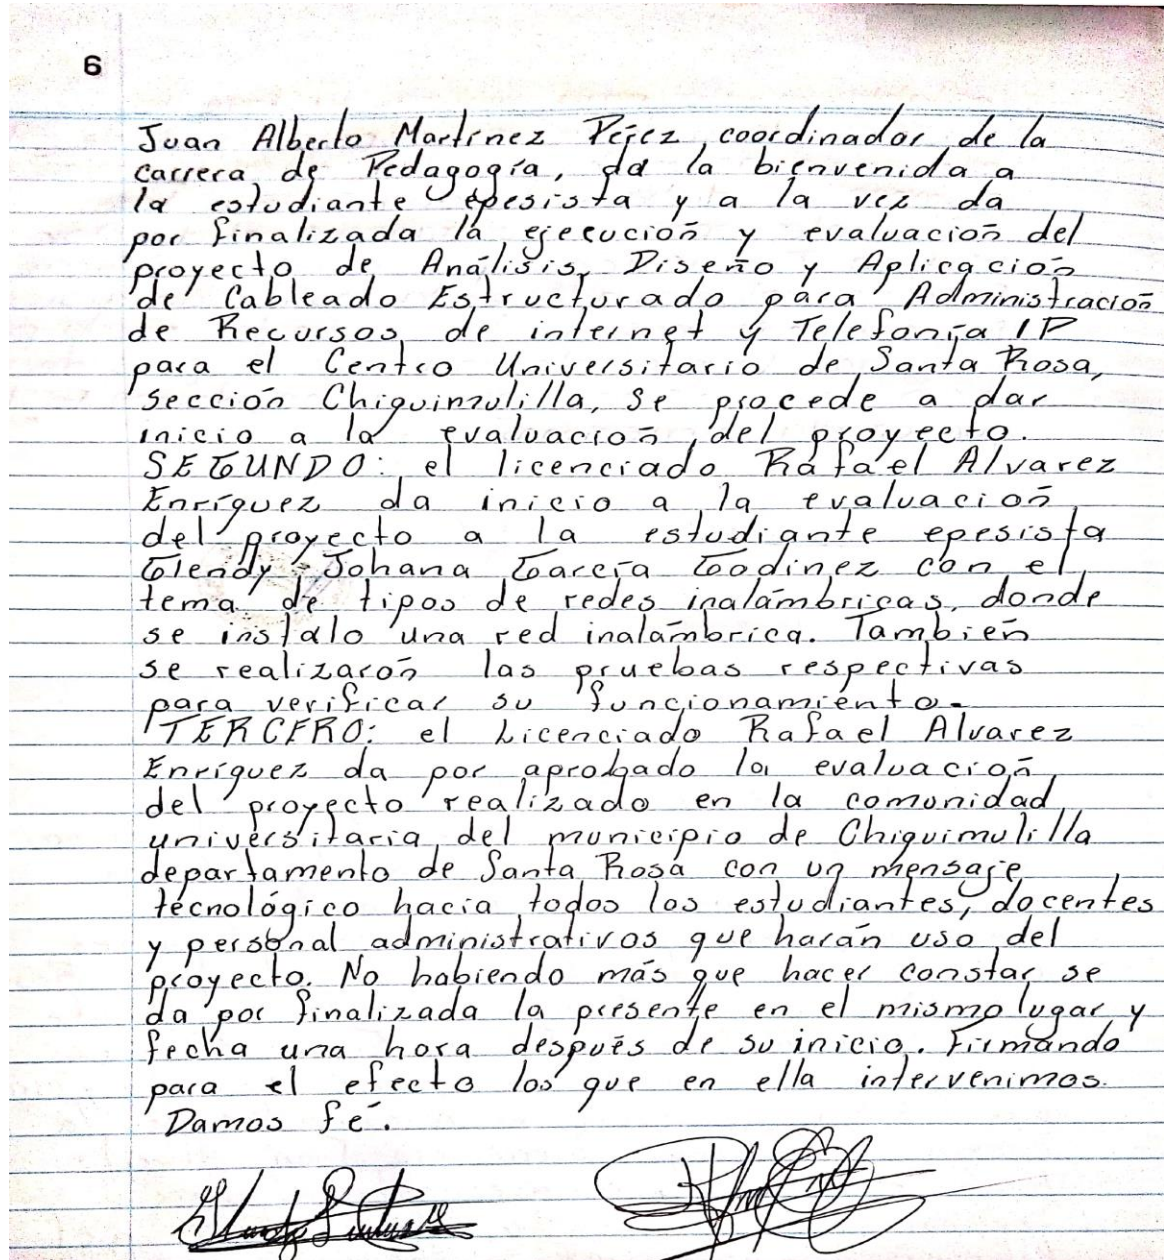 6
Juan Alberto Martínez Pérez, coordinador de la
carrera de Pedagogía, da la bienvenida a
la estudiante epesista y a la vez da
por finalizada la ejecución y evaluación del
proyecto de Análisis, Diseño y Aplicación
de Cableado Estructurado para Administración
de Recursos de internet y Telefonía IP
para el Centro Universitario de Santa Rosa,
sección Chiquimulilla, se procede a dar
inicio a la evaluación del proyecto.
SEGUNDO: el licenciado Rafael Alvarez
Enríquez da inicio a la evaluación
del proyecto a la estudiante epesista
Glendy Johana García Godinez con el
tema de tipos de redes inalámbricas, donde
se instalo una red inalámbrica. También
se realizarón las pruebas respectivas
para verificar su funcionamiento.
TERCERO: el Licenciado Rafael Alvarez
Enríquez da por aprobado la evaluación
del proyecto realizado en la comunidad
universitaria del municipio de Chiquimulilla
departamento de Santa Rosa con un mensaje
técnológico hacia todos los estudiantes, docentes
y personal administrativos que harán uso del
proyecto. No habiendo más que hacer constar se
da por finalizada la presente en el mismo lugar y
fecha una hora después de su inicio. Firmando
para el efecto los que en ella intervenimos.
Damos fé.